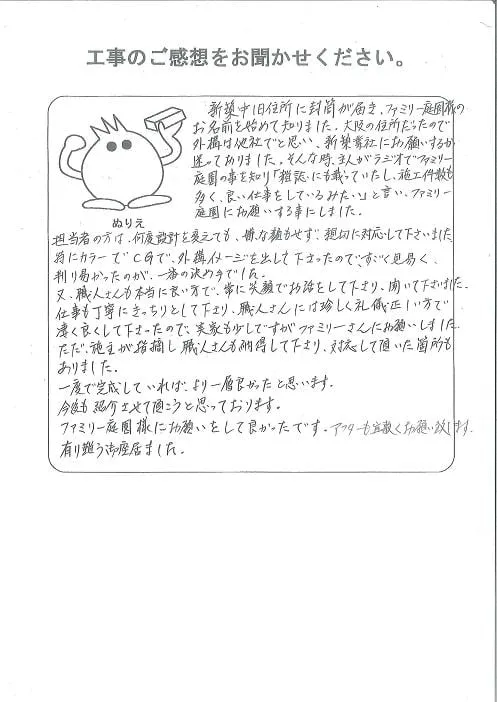 工事のご感想をお聞かせください。
新築中旧住所に封筒が届き、ファミリー庭園様の
お名前を始めて知りました。大阪の住所だったので
外構は他社でと思い、新築会社にお願いするか
迷っておりました。そんな時、主人がラジオでファミリー
庭園の事を知り「雑誌にも載っていたし、施工件数も
多く、良い仕事をしているみたい」と言い、ファミリー
庭園にお願いする事にしました。
ぬりえ
担当者の方は、何度設計を変えても、嫌な顔もせず、親切に対応して下さいました。
特にカラーでCGで、外構イメージを出して下さったので、すごく見易く、
判り易かったのが、一番の決め手でした。
又、職人さんも本当に良い方で、常に笑顔でお話をして下さり、聞いて下さいました。
仕事も丁寧にきっちりとして下さり、職人さんには珍しく礼儀正しい方で
凄く良くして下さったので、実家も少しですがファミリーさんにお願いしました。
ただ、施主が指摘し職人さんも納得して下さり、対応して頂いた箇所も
ありました。
一度で完成していれば、より一層良かったと思います。
今後も紹介させて頂こうと思っております。
ファミリー庭園様にお願いをして良かったです。アフターも宜敷くお願い致します。
有り難う御座居ました。